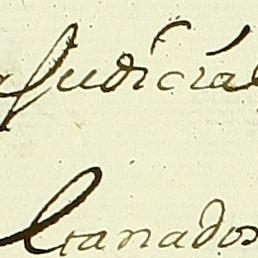 Judicial
Granados